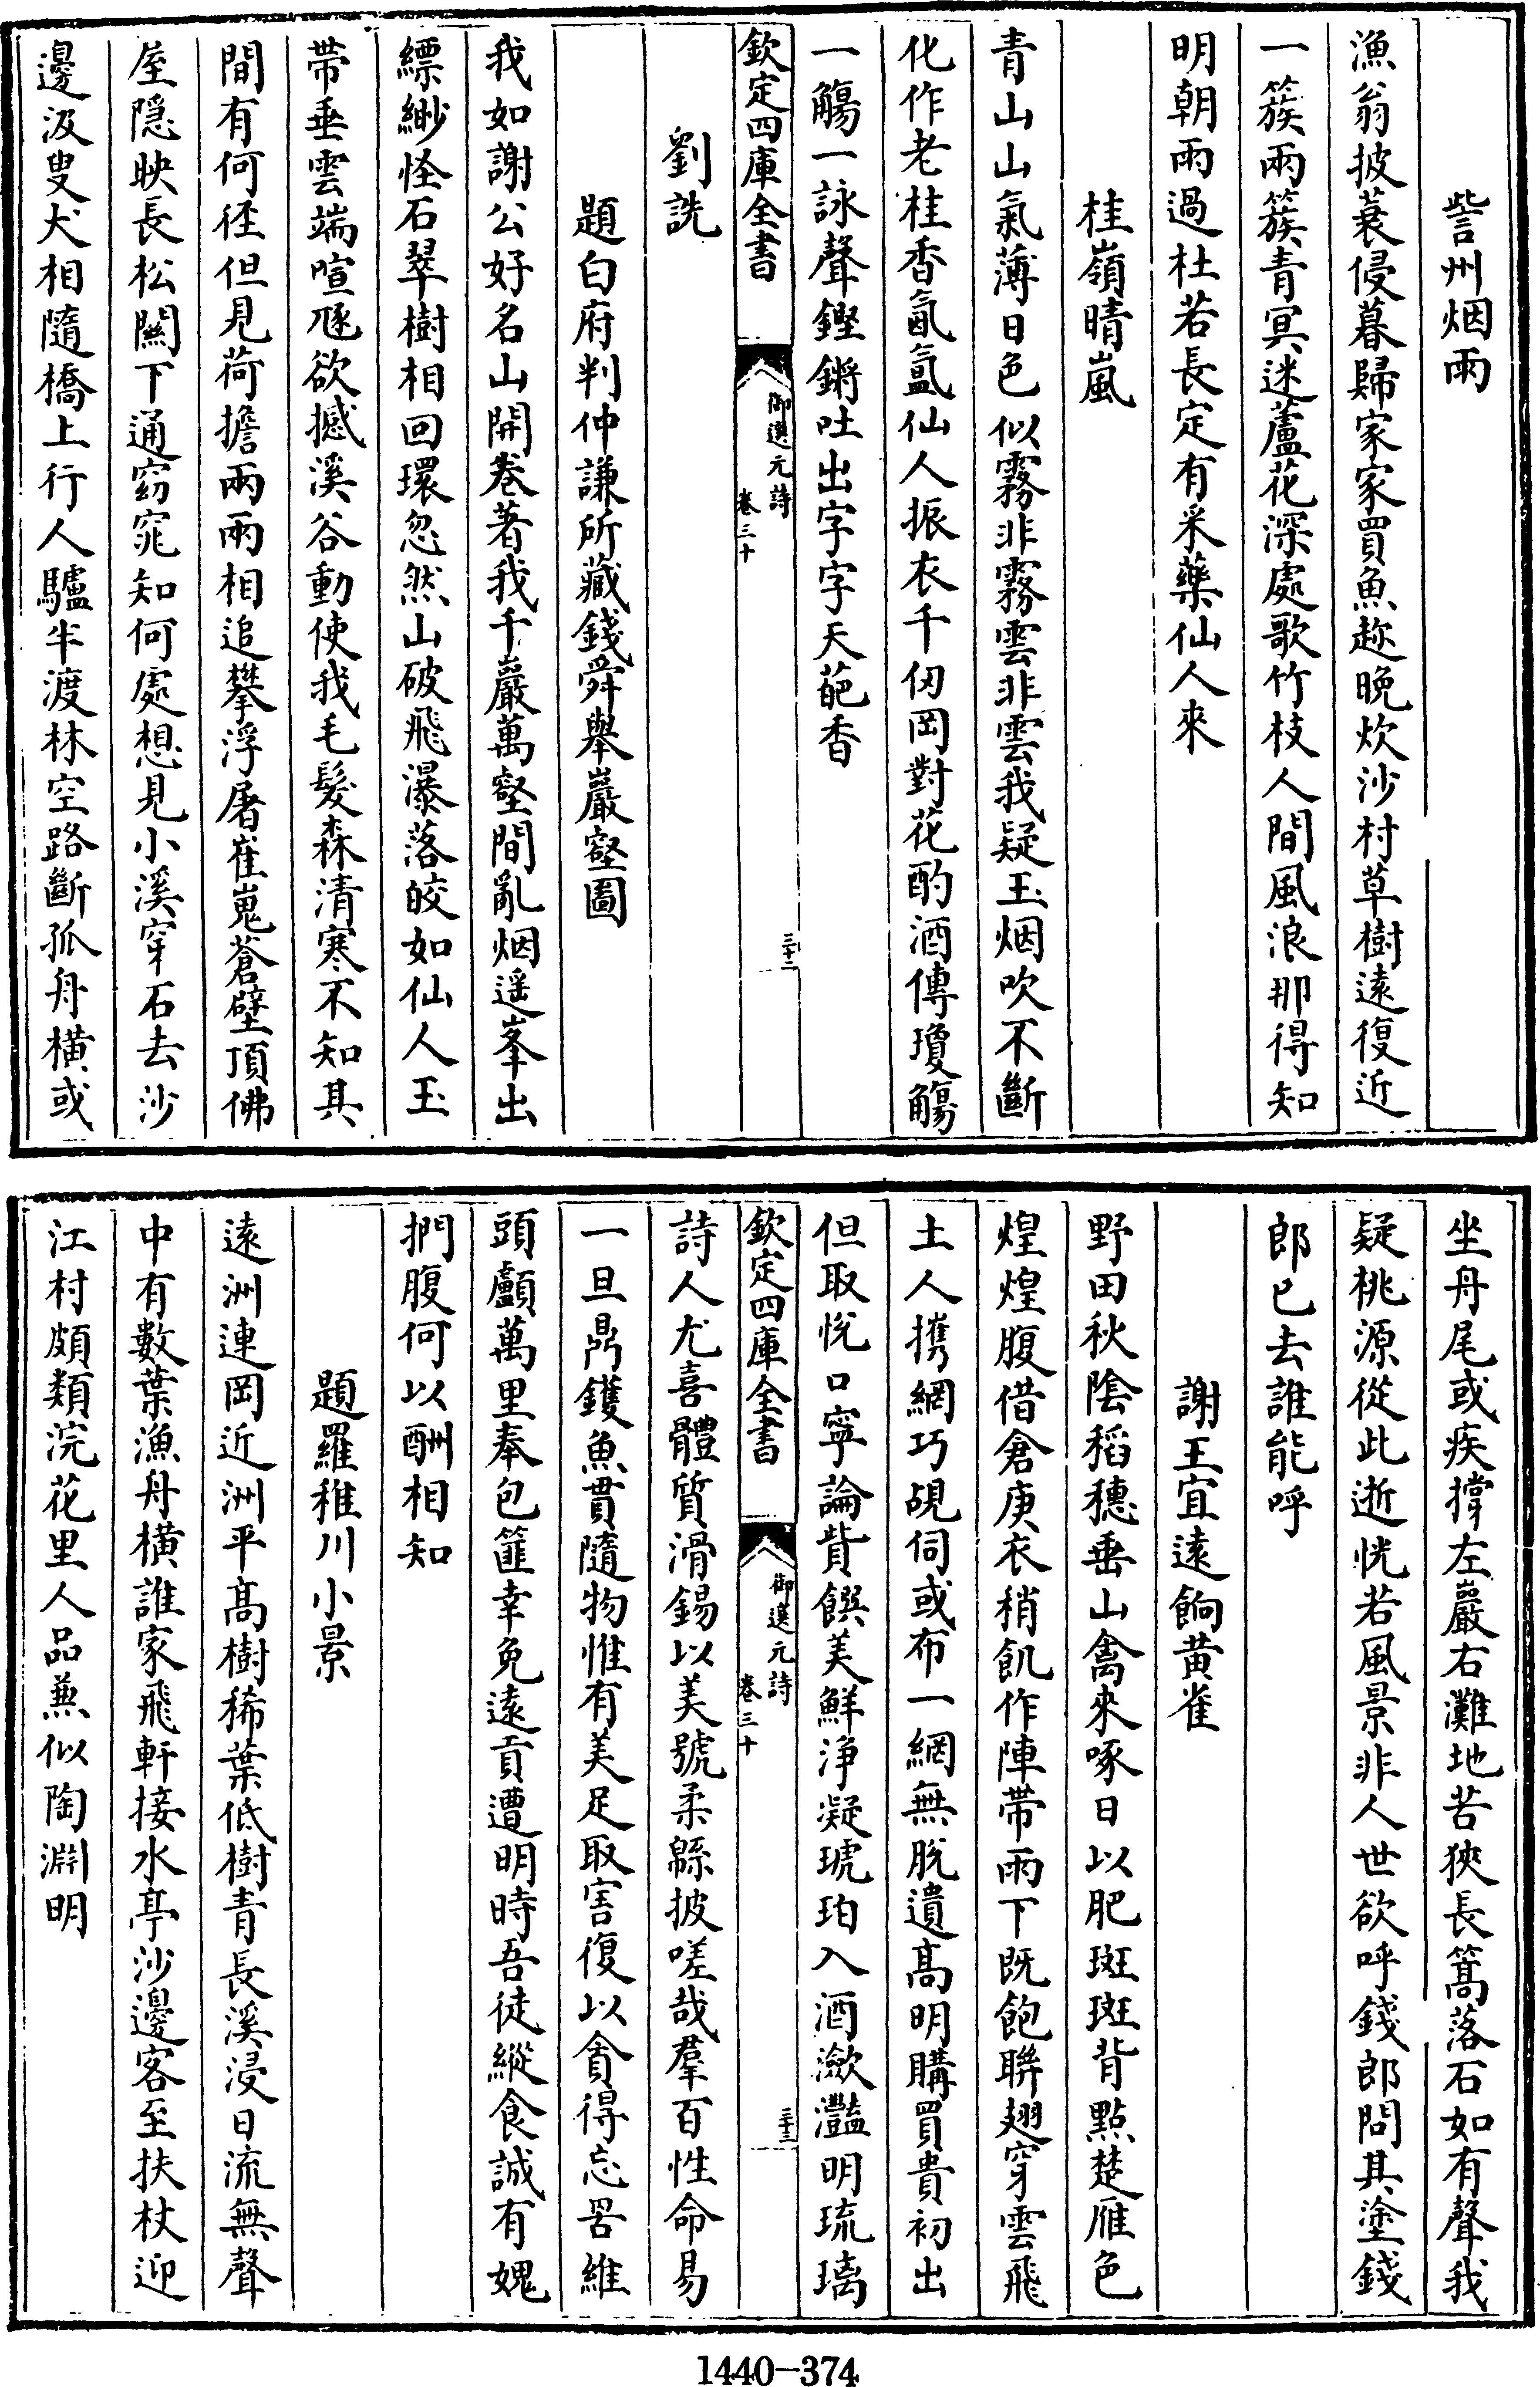 訾州烟雨
漁翁披蓑侵暮歸家家買魚趂晚炊沙村草樹遠復近
一簇兩簇青冥迷蘆花深處歌竹枝人間風浪那得知
明朝雨過杜若長定有采藥仙人來
桂嶺晴嵐
青山山氣薄日色似霧非霧雲非雲我疑玉烟吹不斷
化作老桂香氤氲仙人振衣千仞岡對花酌酒傳瓊觴
一觴一詠聲鏗鏘吐出字字天葩香
欽定四庫全書
御選元詩
卷三十
三十二
劉詵
題白府判仲謙所藏錢舜舉巖壑圖
我如謝公好名山開卷著我千巖萬壑間亂烟遥峯出
縹緲怪石翠樹相回環忽然山破飛瀑落皎如仙人玉
帶垂雲端喧豗欲撼溪谷動使我毛髮森清寒不知其
間有何徑但見荷擔兩兩相追攀浮屠崔嵬蒼壁頂佛
屋隱映長松闗下通窈窕知何處想見小溪穿石去沙
邊汲叟犬相隨橋上行人驢半渡林空路斷孤舟橫或
坐舟尾或疾撐左巖右灘地苦狹長篙落石如有聲我
疑桃源從此逝恍若風景非人世欲呼錢郎問其塗錢
郎已去誰能呼
謝王宜遠餉黄雀
野田秋陰稻穗垂山禽來啄日以肥斑斑背點楚雁色
煌煌腹借倉庚衣稍飢作陣帶雨下既飽聯翅穿雲飛
土人擕網巧覘伺或布一網無脱遺髙明購買貴初出
但取悅口寧論貲饌美鮮浄凝琥珀入酒瀲灩明琉璃
欽定四庫全書
御選元詩
卷三十
三十三
詩人尤喜體質滑錫以美號柔緜披嗟哉羣百性命易
一旦鼎鑊魚貫隨物惟有美足取害復以貪得忘罟維
頭顱萬里奉包匭幸免遠貢遭明時吾徒縱食誠有媿
捫腹何以酬相知
題羅稚川小景
遠洲連岡近洲平髙樹稀葉低樹青長溪浸日流無聲
中有數葉漁舟橫誰家飛軒接水亭沙邊客至扶杖迎
江村頗類浣花里人品兼似陶淵明
1440-374